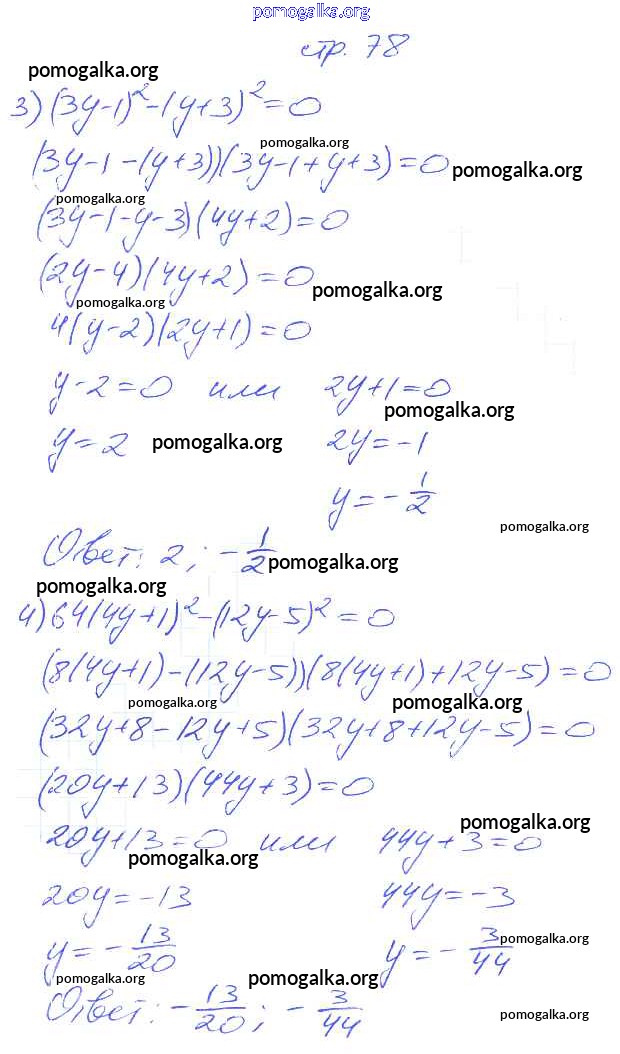 pomogalka.org
стр. 78
pomogalka.org
3) (3y-1)²-(y+3)²=0
pomogalka.org
(3y-1-(y+3))(3y-1+y+3)=0 pomogalka.org
pomogalka.org
(3y-1-y-3)(4y+2)=0
(2y-4)(4y+2)=0 pomogalka.org
pomogalka.org
4(y-2)(2y+1)=0
y-2=0 или 2y+1=0
pomogalka.org
y=2 pomogalka.org 2y=-1
y=-1/2
pomogalka.org
Ответ: 2; -1/2 pomogalka.org
pomogalka.org
4) 64(4y+1)²-(12y-5)²=0
(8(4y+1)-(12y-5))(8(4y+1)+12y-5)=0
pomogalka.org pomogalka.org
(32y+8-12y+5)(32y+8+12y-5)=0
(20y+13)(44y+3)=0
pomogalka.org
20y+13=0 или 44y+3=0
pomogalka.org
20y=-13 44y=-3
y=-13/20 y=-3/44 pomogalka.org
pomogalka.org pomogalka.org
Ответ: -13/20; -3/44 pomogalka.org